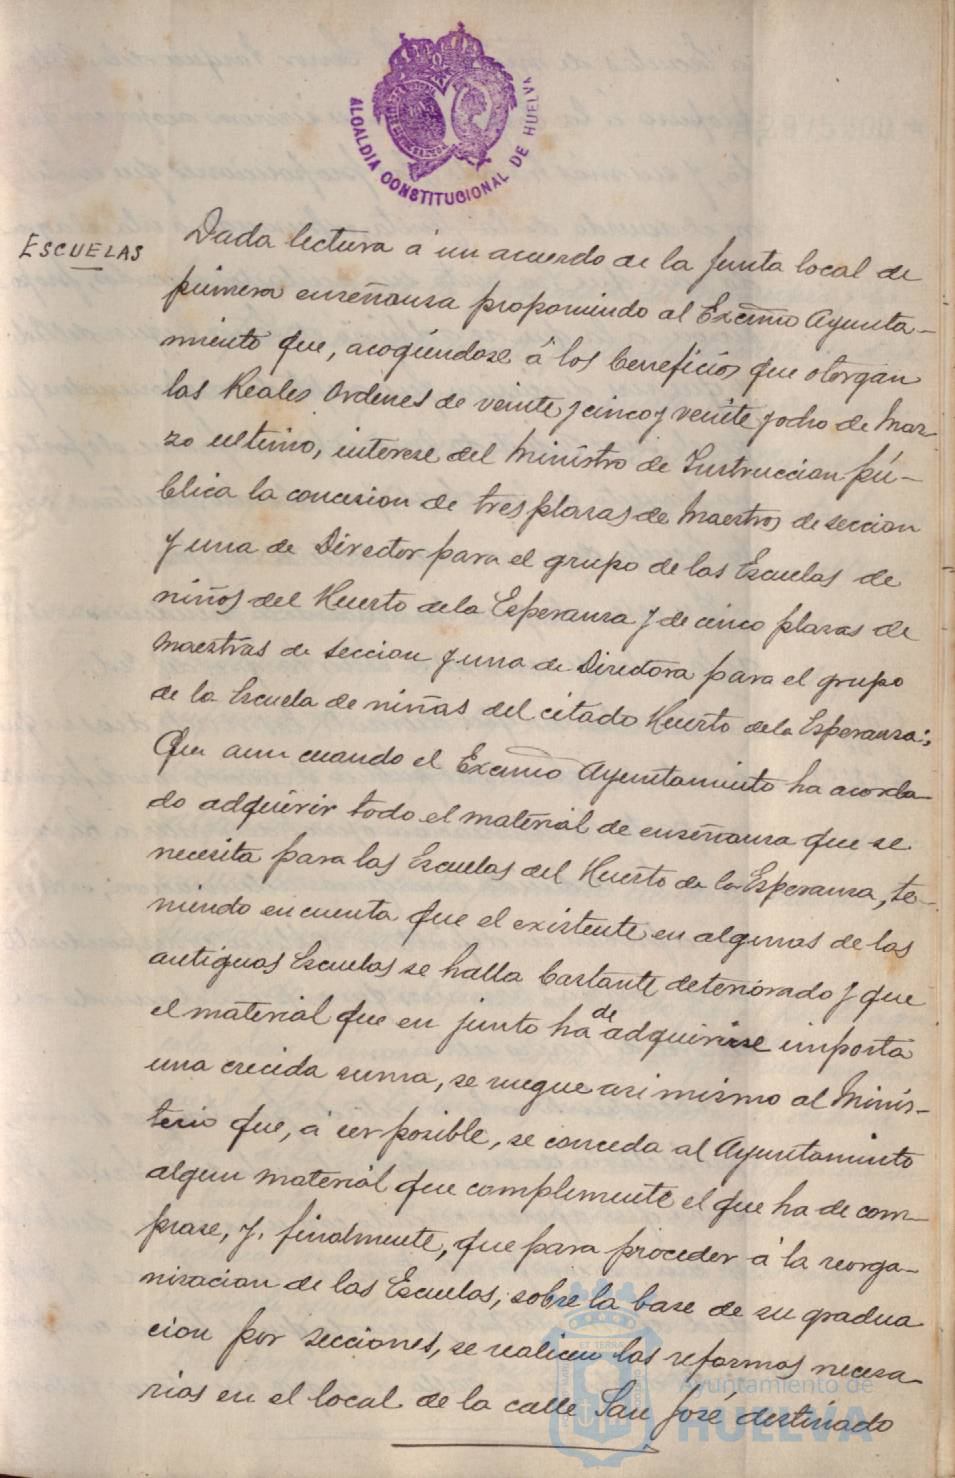 ALCALDIA CONSTITUCIONAL DE HUELVA
ESCUELAS
Dada lectura á un acuerdo de la Junta local de
primera enseñanza proponiendo al Excmo Ayunta-
miento que, acogiendose á los beneficios que otorgan
las Reales Ordenes de veinte y cinco y veinte y ocho de Mar-
zo ultimo, interese del Ministro de Instruccion pú-
blica la concesion de tres plazas de Maestros de seccion
y una de Director para el grupo de las Escuelas de
niños del Huerto de la Esperanza y de cinco plazas de
Maestras de seccion y una de Directora para el grupo
de la Escuela de niñas del citado Huerto de la Esperanza;
Que aun cuando el Excmo Ayuntamiento ha acorda-
do adquirir todo el material de enseñanza que se
necesita para las Escuelas del Huerto de la Esperanza, te-
niendo en cuenta que el existente en algunas de las
antiguas Escuelas se halla bastante deteriorado y que
el material que en junto ha de adquirirse importa
una crecida suma, se ruegue asi mismo al Minis-
terio que, á ser posible, se conceda al Ayuntamiento
algun material que complemente el que ha de com-
prarse, y, finalmente, que para proceder á la reorga-
nizacion de las Escuelas, sobre la base de su gradua
cion por secciones, se realicen las reformas necesa-
rias en el local de la calle San José destinado
Ayuntamiento de
HUELVA